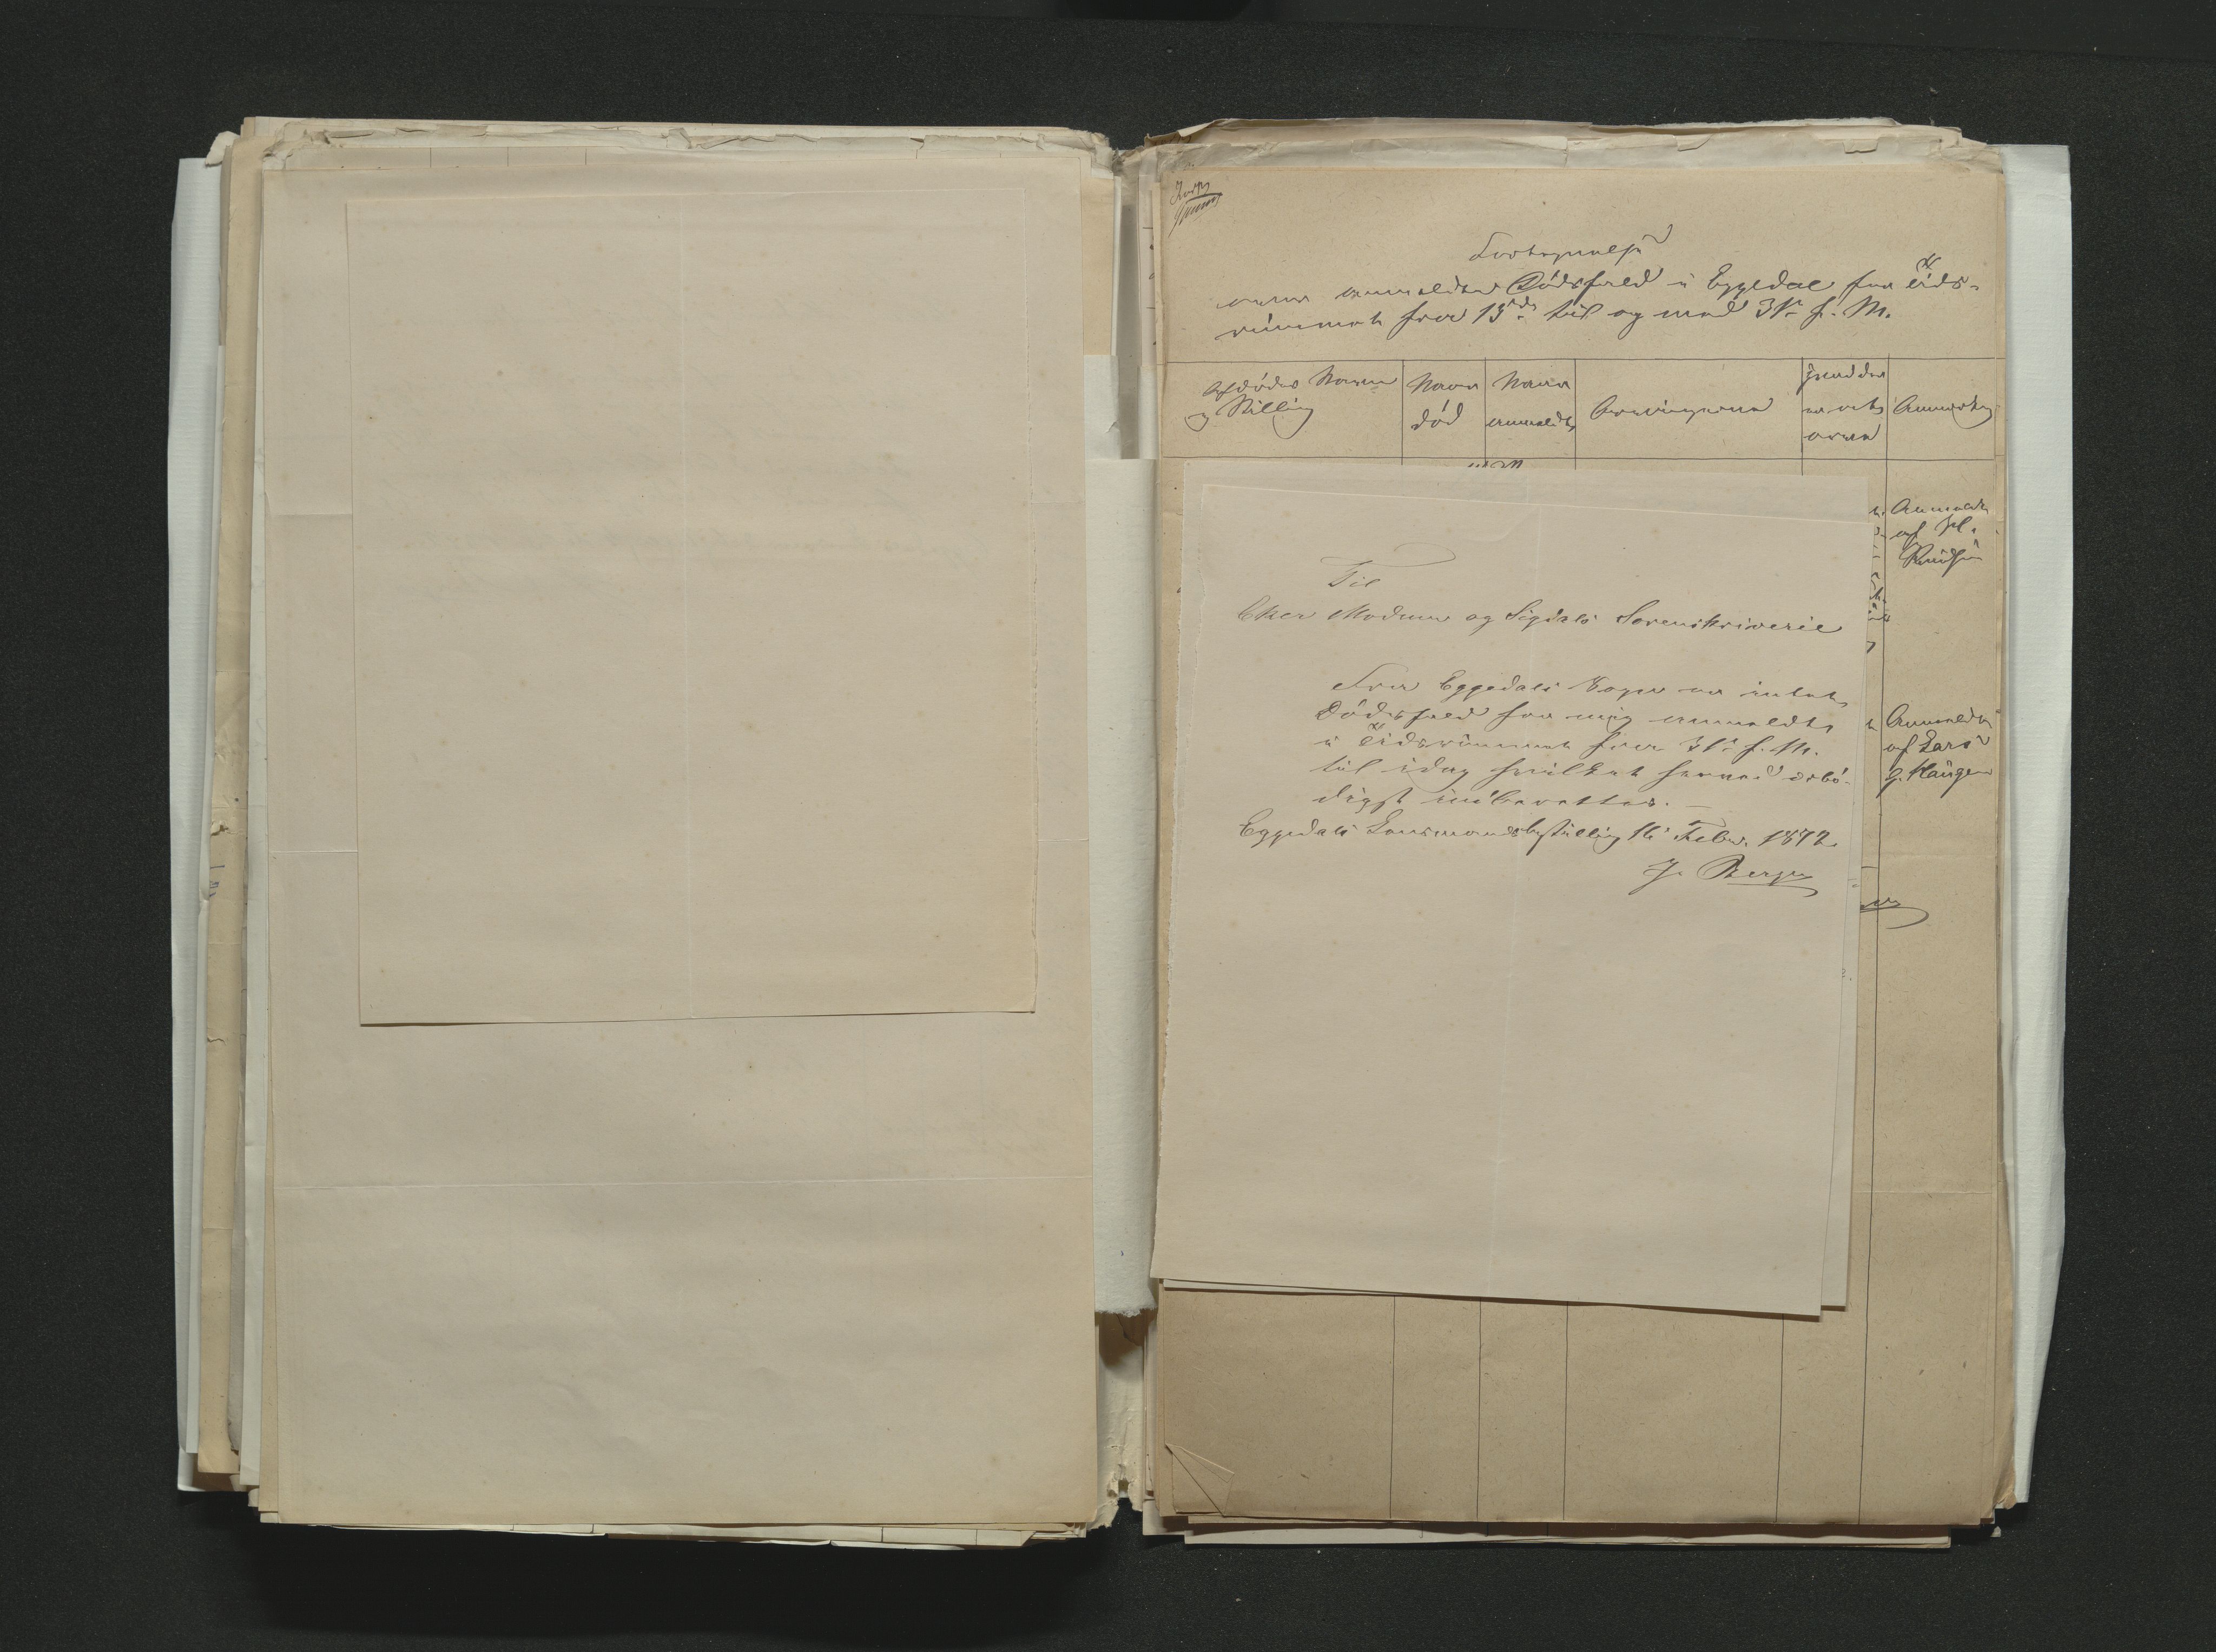 Fortegnelse
over anmeldte Dödsfald i Eggedal for Tids-
rummet fra 15de til og med 31te f. M.
Afdödes Navn
og Stilling
Naar
död
Naar
anmeldt
Arvingerne
Anmærkng
Anmeldt
af Hl.
Knudsen
Anmeldt
af Lars
g. Haugen
Til
Eker Modum og Sigdals Sorenskriverie
Fra Eggedals Sogn er intet
Dödsfald for mig anmeldt
i Tidsrummet fra 31te f. M.
til idag hvilket herved ærbö-
digst indberettes. –
Eggedals Lensmandsbestilling 16 Febr. 1872.
J. Berge